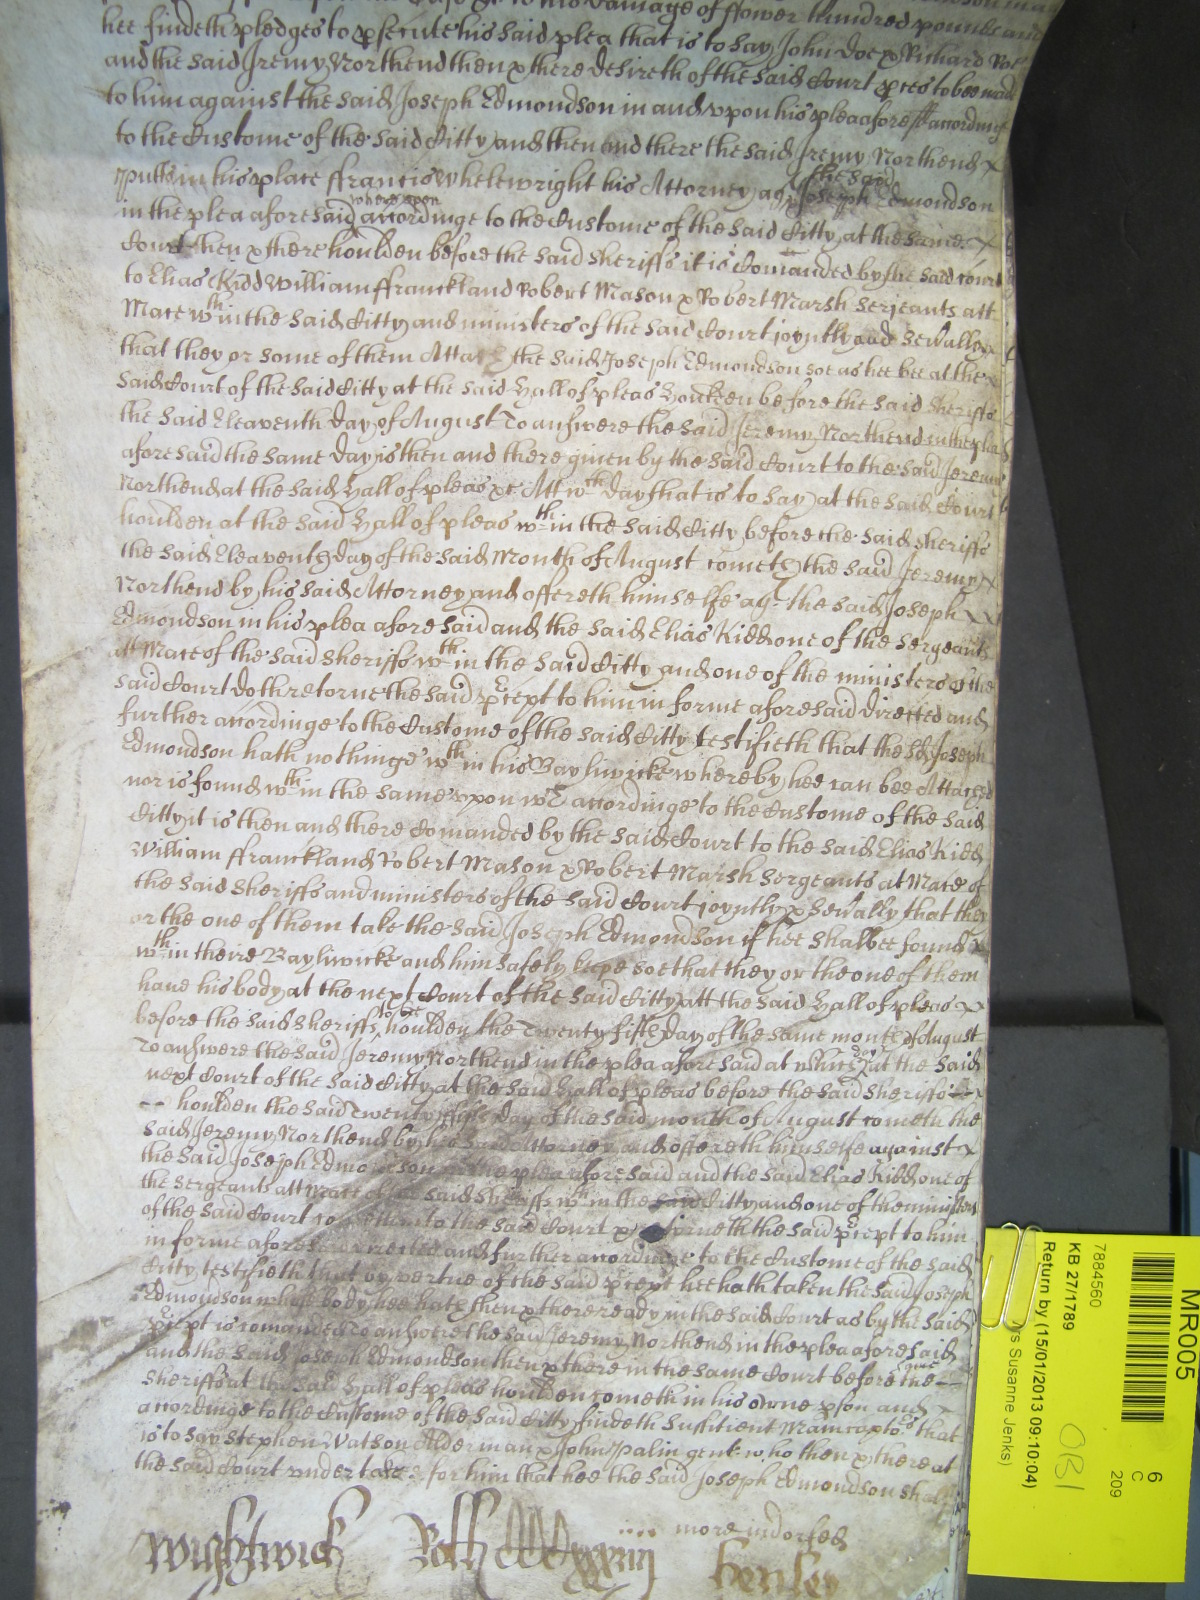 to his damage of ffower hundred pounds and
hee findeth pledges to psecute his said plea that is to say John Doe & Richard Roe
and the said Jeremy Northend then & there desireth of the said Court pces to bee made
to him against the said Joseph Edmondson in and vpon his plea aforesd according
to the Custome of the said Citty and then and there the said Jeremy Northend x
putts in his place ffrancis Whelewright his Attorney agt the said Joseph Edmondson
in the plea aforesaid whereupon accordinge to the Custome of the said Citty at the same x
Court then & there houlden before the said sheriffs it is Comanded by the said Court
to Elias Kidd William ffranckland Robert Mason & Robert Marsh Serjeants att
Mace wthin the said Citty and ministers of the said Court joyntly and sevally x
that they or some of them Attach the said Joseph Edmondson soe as hee bee at the x
said Court of the said Citty at the said Hall of pleas houlden before the said sheriffs
the said Eleaventh day of August To answere the said Jeremy Northend in the plea
aforesaid the same day is then and there given by the said Court to the said Jeremy
Northend at the said Hall of pleas &c Att wch day that is to say at the said Court
houlden at the said Hall of pleas wthin the said Citty before the said sheriffs
the said Eleaventh day of the said Month of August cometh the said Jeremy x
Northend by his said Attorney and offereth himselfe agt the said Joseph x x
Edmondson in his plea aforesaid and the said Elias Kidd one of the Sergeants
att Mace of the said sheriffs wthin the said Citty and one of the ministers of the
said Court doth retorne the said pcept to him in forme aforesaid directed and
further accordinge to the Custome of the said Citty testifieth that the sd Joseph
Edmondson hath nothinge wthin his Bayliwicke whereby hee can bee Attached
nor is found wthin the same vpon wch accordinge to the Custome of the said
Citty it is then and there Comanded by the said Court to the said Elias Kidd
William ffranckland Robert Mason & Robert Marsh Sergeants at Mace of
the said sheriffs and ministers of the said Court joyntly & sevally that they
or the one of them take the said Joseph Edmondson if hee shalbee found x
wthin theire Bayliwicke and him safely keepe soe that they or the one of them
have his body at the next Court of the said Citty att the said Hall of pleas x
before the said sheriffs to be houlden the Twenty fifth day of the same month of August
To answere the said Jeremy Northend in the plea aforesaid at which day at the said
next Court of the said Citty at the said Hall of pleas before the said sheriffs
-- houlden the said Twenty fifth day of the said month of August cometh the
said Jeremy Northend by his said Attorney and offereth himselfe against x
the said Joseph Edmondson in the plea aforesaid and the said Elias Kidd one of
the Sergeants att Mace of the said sheriffs wthin the said Citty and one of the ministers
of the said Court cometh into the said Court & retorneth the said pcept to him
in forme aforesaid directed and further accordinge to the Custome of the said
Citty testifieth that by vertue of the said pcept hee hath taken the said Joseph
Edmondson whose body hee hath then & there ready in the said Court as by the said
pcept is comanded To answere the said Jeremy Northend in the plea aforesaid
and the said Joseph Edmondson then & there in the same Court before the same
sheriffs at the said Hall of pleas houlden cometh in his owne pson and x
accordinge to the Custome of the said Citty findeth suffitient Maincaptors that
is to say Stephen Watson Alderman & John Palin gent who then & there at
the said Court undertake for him that hee the said Joseph Edmondson shall
more indorsed
Wightwick Roll Henley
MR005
6
C
209
7884560
KB 27/1789
Return by (15/01/2013 09:10:04)
Susanne Jenks)